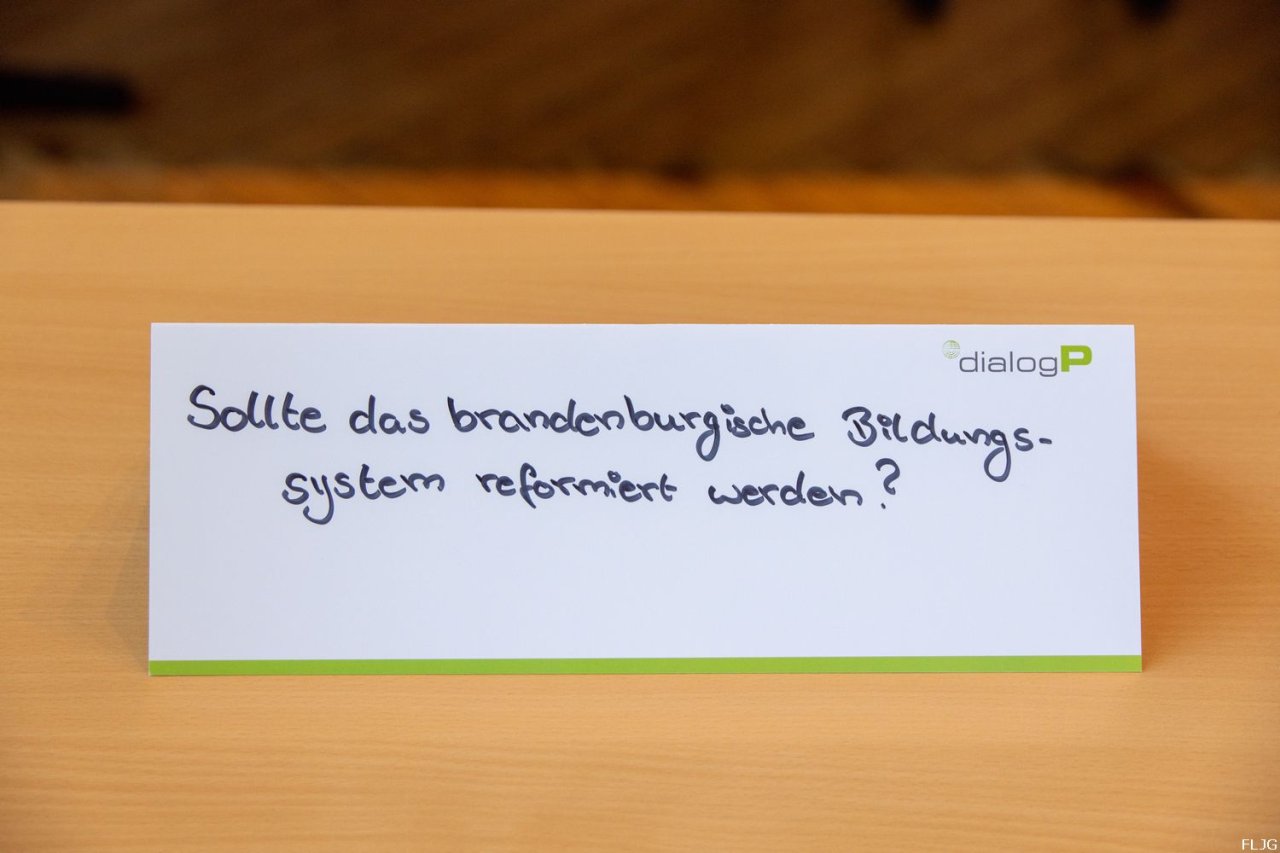 dialogP
Sollte das brandenburgische Bildungs-
system reformiert werden?
FLJG